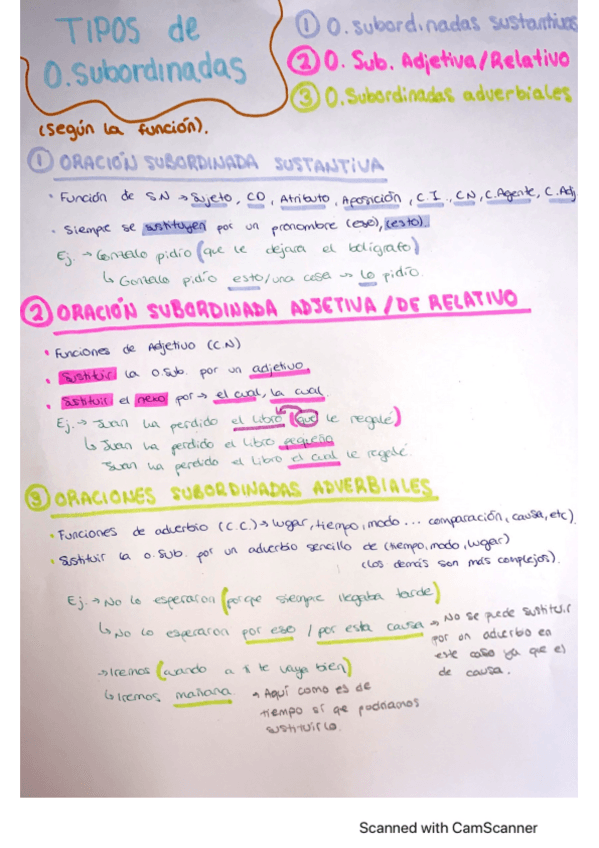 TIPOS de
O.Subordinadas
(según la función).
① O.subordinadas sustantivas
② O. Sub. Adjetiva/Relativo
③ O.Subordinadas adverbiales
① ORACIÓN SUBORDINADA SUSTANTIVA
• Función de S.N → Sujeto, CD, Atributo, Aposición, C.I., CN, C.Agente, C.Adj
• Siempre se sustituyen por un pronombre (eso), (esto).
Ej. → Gonzalo pidió (que le dejara el bolígrafo)
↳ Gonzalo pidió esto/una cosa → Lo pidió.
② ORACIÓN SUBORDINADA ADJETIVA/DE RELATIVO
• Funciones de Adjetivo (C.N)
• Sustituir la O.Sub. por un adjetivo.
• Sustituir el nexo por → el cual, la cual.
Ej. → Juan ha perdido el libro (que le regalé)
↳ Juan ha perdido el libro pequeño
Juan ha perdido el libro el cual le regalé.
③ ORACIONES SUBORDINADAS ADVERBIALES
• Funciones de adverbio (C.C.) → lugar, tiempo, modo... comparación, causa, etc).
• Sustituir la O.Sub. por un adverbio sencillo de (tiempo, modo, lugar)
(los demás son más complejos).
Ej. → No lo esperaron (porque siempre llegaba tarde)
↳ No lo esperaron por eso / por esta causa
→ No se puede sustituir
por un adverbio en
este caso ya que es
de causa.
→ Iremos (cuando a ti te vaya bien)
↳ Iremos mañana.
→ Aquí como es de
tiempo sí que podríamos
sustituirlo.
Scanned with CamScanner